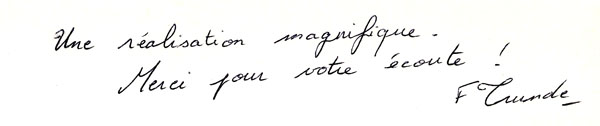 Une réalisation magnifique.
Merci pour votre écoute !
F